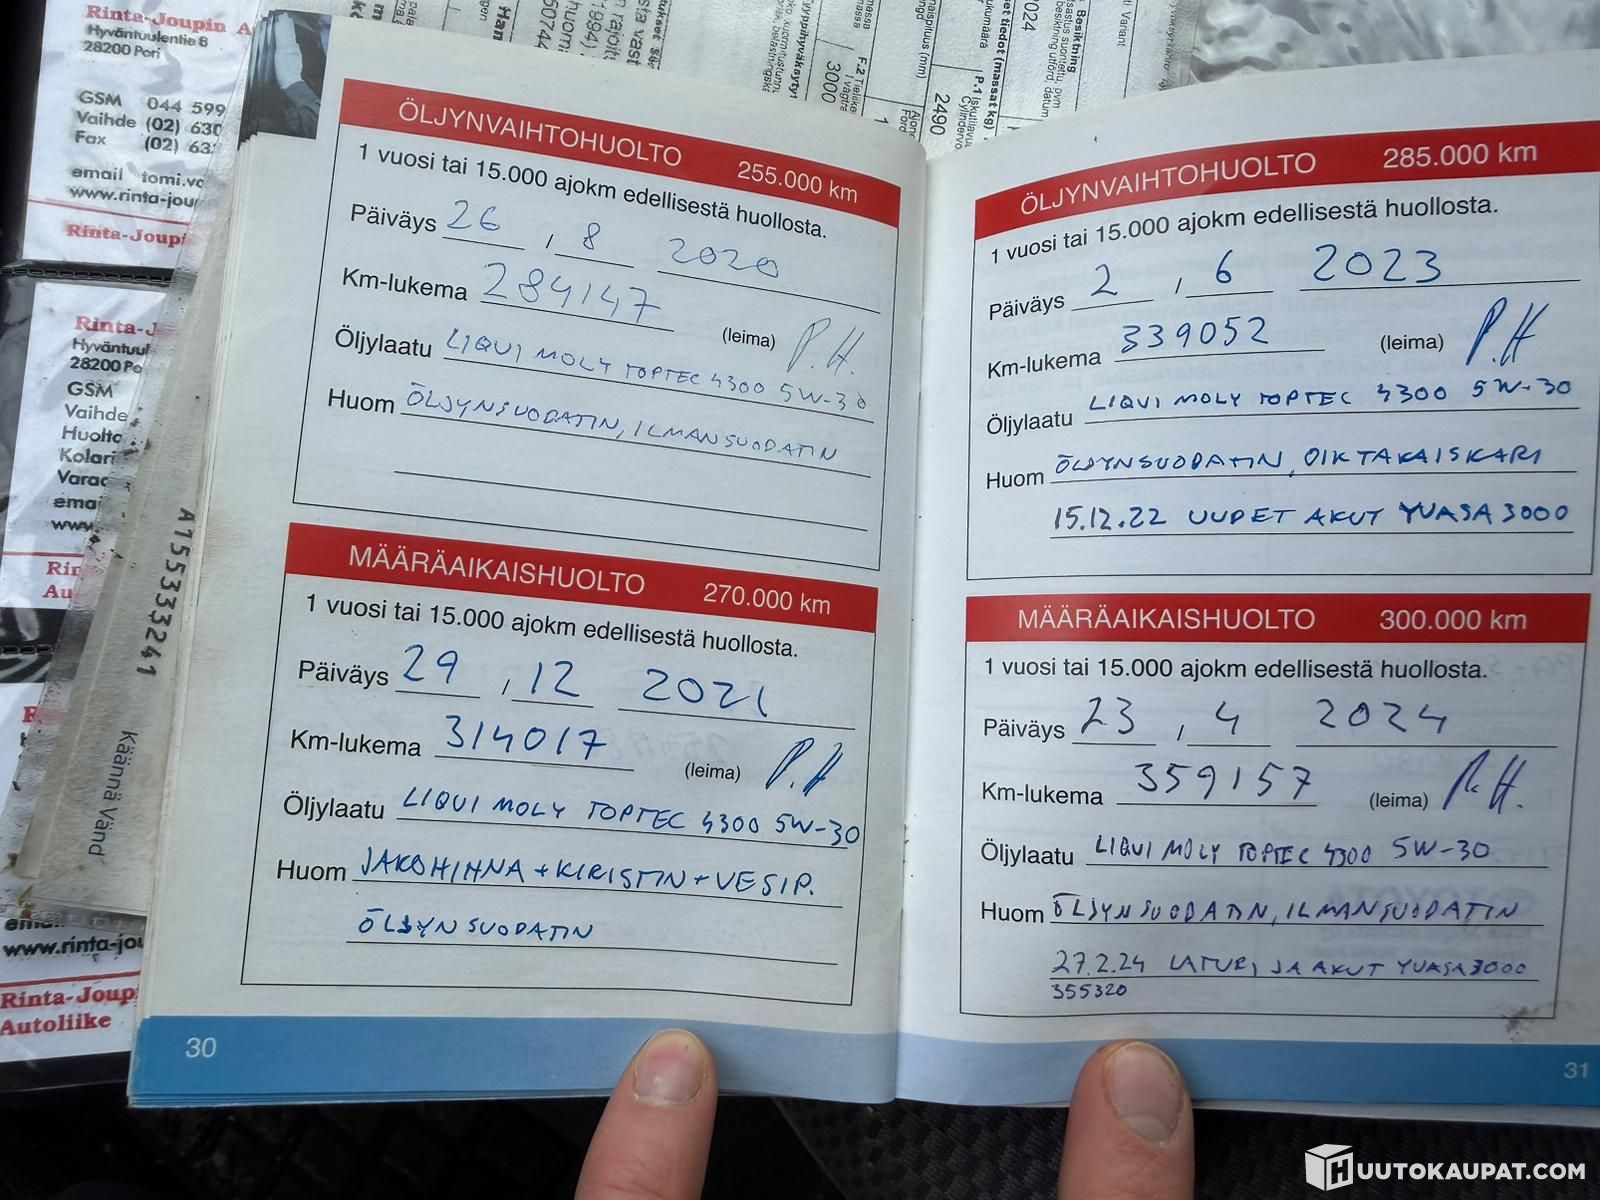 Rinta-Joupin A
Hyväntuulentie 8
28200 Pori
GSM 044 599
Vaihde (02) 630
Fax (02) 63
email tomi.va
www.rinta-jou
Rinta-Joupi
Rinta-J
Hyväntuul
28200 Po
GSM
Vaihde
Huolto
Kolari
Varao
emai
www.
Rin
Au
www.rinta-jou
Rinta-Joupin
Autoliike
A155333241
Käännä Vänd
F.2
3000
2490
2024
Besiktning
ÖLJYNVAIHTOHUOLTO 255.000 km
1 vuosi tai 15.000 ajokm edellisestä huollosta.
Päiväys 26 , 8 2020
Km-lukema 284147
(leima) P.H.
Öljylaatu LIQUI MOLY TOPTEC 4300 5W-30
Huom ÖLJYNSUODATIN, ILMANSUODATIN
MÄÄRÄAIKAISHUOLTO 270.000 km
1 vuosi tai 15.000 ajokm edellisestä huollosta.
Päiväys 29 , 12 2021
Km-lukema 314017
(leima) P.H
Öljylaatu LIQUI MOLY TOPTEC 4300 5W-30
Huom JAKOHIHNA + KIRISTIN + VESIP.
ÖLJYNSUODATIN
30
ÖLJYNVAIHTOHUOLTO 285.000 km
1 vuosi tai 15.000 ajokm edellisestä huollosta.
Päiväys 2 , 6 2023
Km-lukema 339052
(leima) P.H
Öljylaatu LIQUI MOLY TOPTEC 4300 5W-30
Huom ÖLJYNSUODATIN, OIK TAKAISKARI
15.12.22 UUDET AKUT YUASA 3000
MÄÄRÄAIKAISHUOLTO 300.000 km
1 vuosi tai 15.000 ajokm edellisestä huollosta.
Päiväys 23 , 4 2024
Km-lukema 359157
(leima) P.H.
Öljylaatu LIQUI MOLY TOPTEC 4300 5W-30
Huom ÖLJYNSUODATIN, ILMANSUODATIN
27.2.24 LATURI JA AKUT YUASA 3000
355320
31
HUUTOKAUPAT.COM